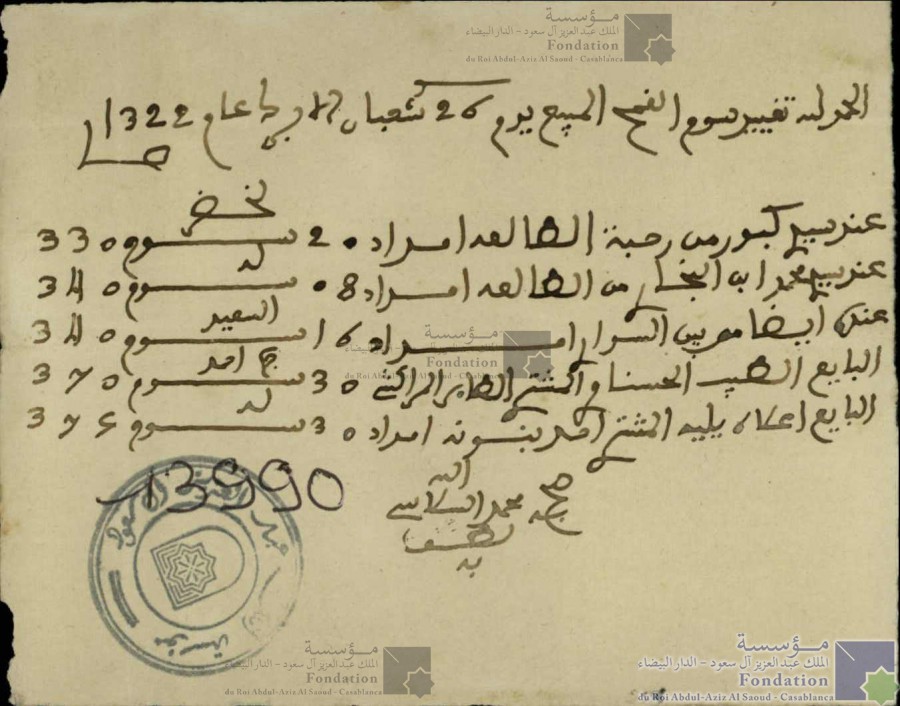 مؤسسة
الملك عبد العزيز آل سعود - الدار البيضاء
Fondation
du Roi Abdul-Aziz Al Saoud - Casablanca
الحمد لله تقييد سوم القمح المبيع يوم 26 شعبان عام 1322
لخضر
عند سيد كبور من رحبة الطالعه امداد 20 سوم 330
له
عند سيد محمد ابن النجار من الطالعه امداد 80 سوم 340
السعيد
عنده ايضا مو بين السرار امداد 16 سوم 340
احمد
البايع الطيب الحسناو المشتر الطاهر المراكشي 30 سوم 370
له
البايع اعلاه يليه المشتر احمد بنسونه امداد 30 سوم 376
صح
محمد
الله
لطف
به
13990
عبد العزيز آل سعود
مؤسسة
مؤسسة
الملك عبد العزيز آل سعود - الدار البيضاء
Fondation
du Roi Abdul-Aziz Al Saoud - Casablanca
مؤسسة
الملك عبد العزيز آل سعود - الدار البيضاء
Fondation
du Roi Abdul-Aziz Al Saoud - Casablanca
مؤسسة
الملك عبد العزيز آل سعود - الدار البيضاء
Fondation
du Roi Abdul-Aziz Al Saoud - Casablanca